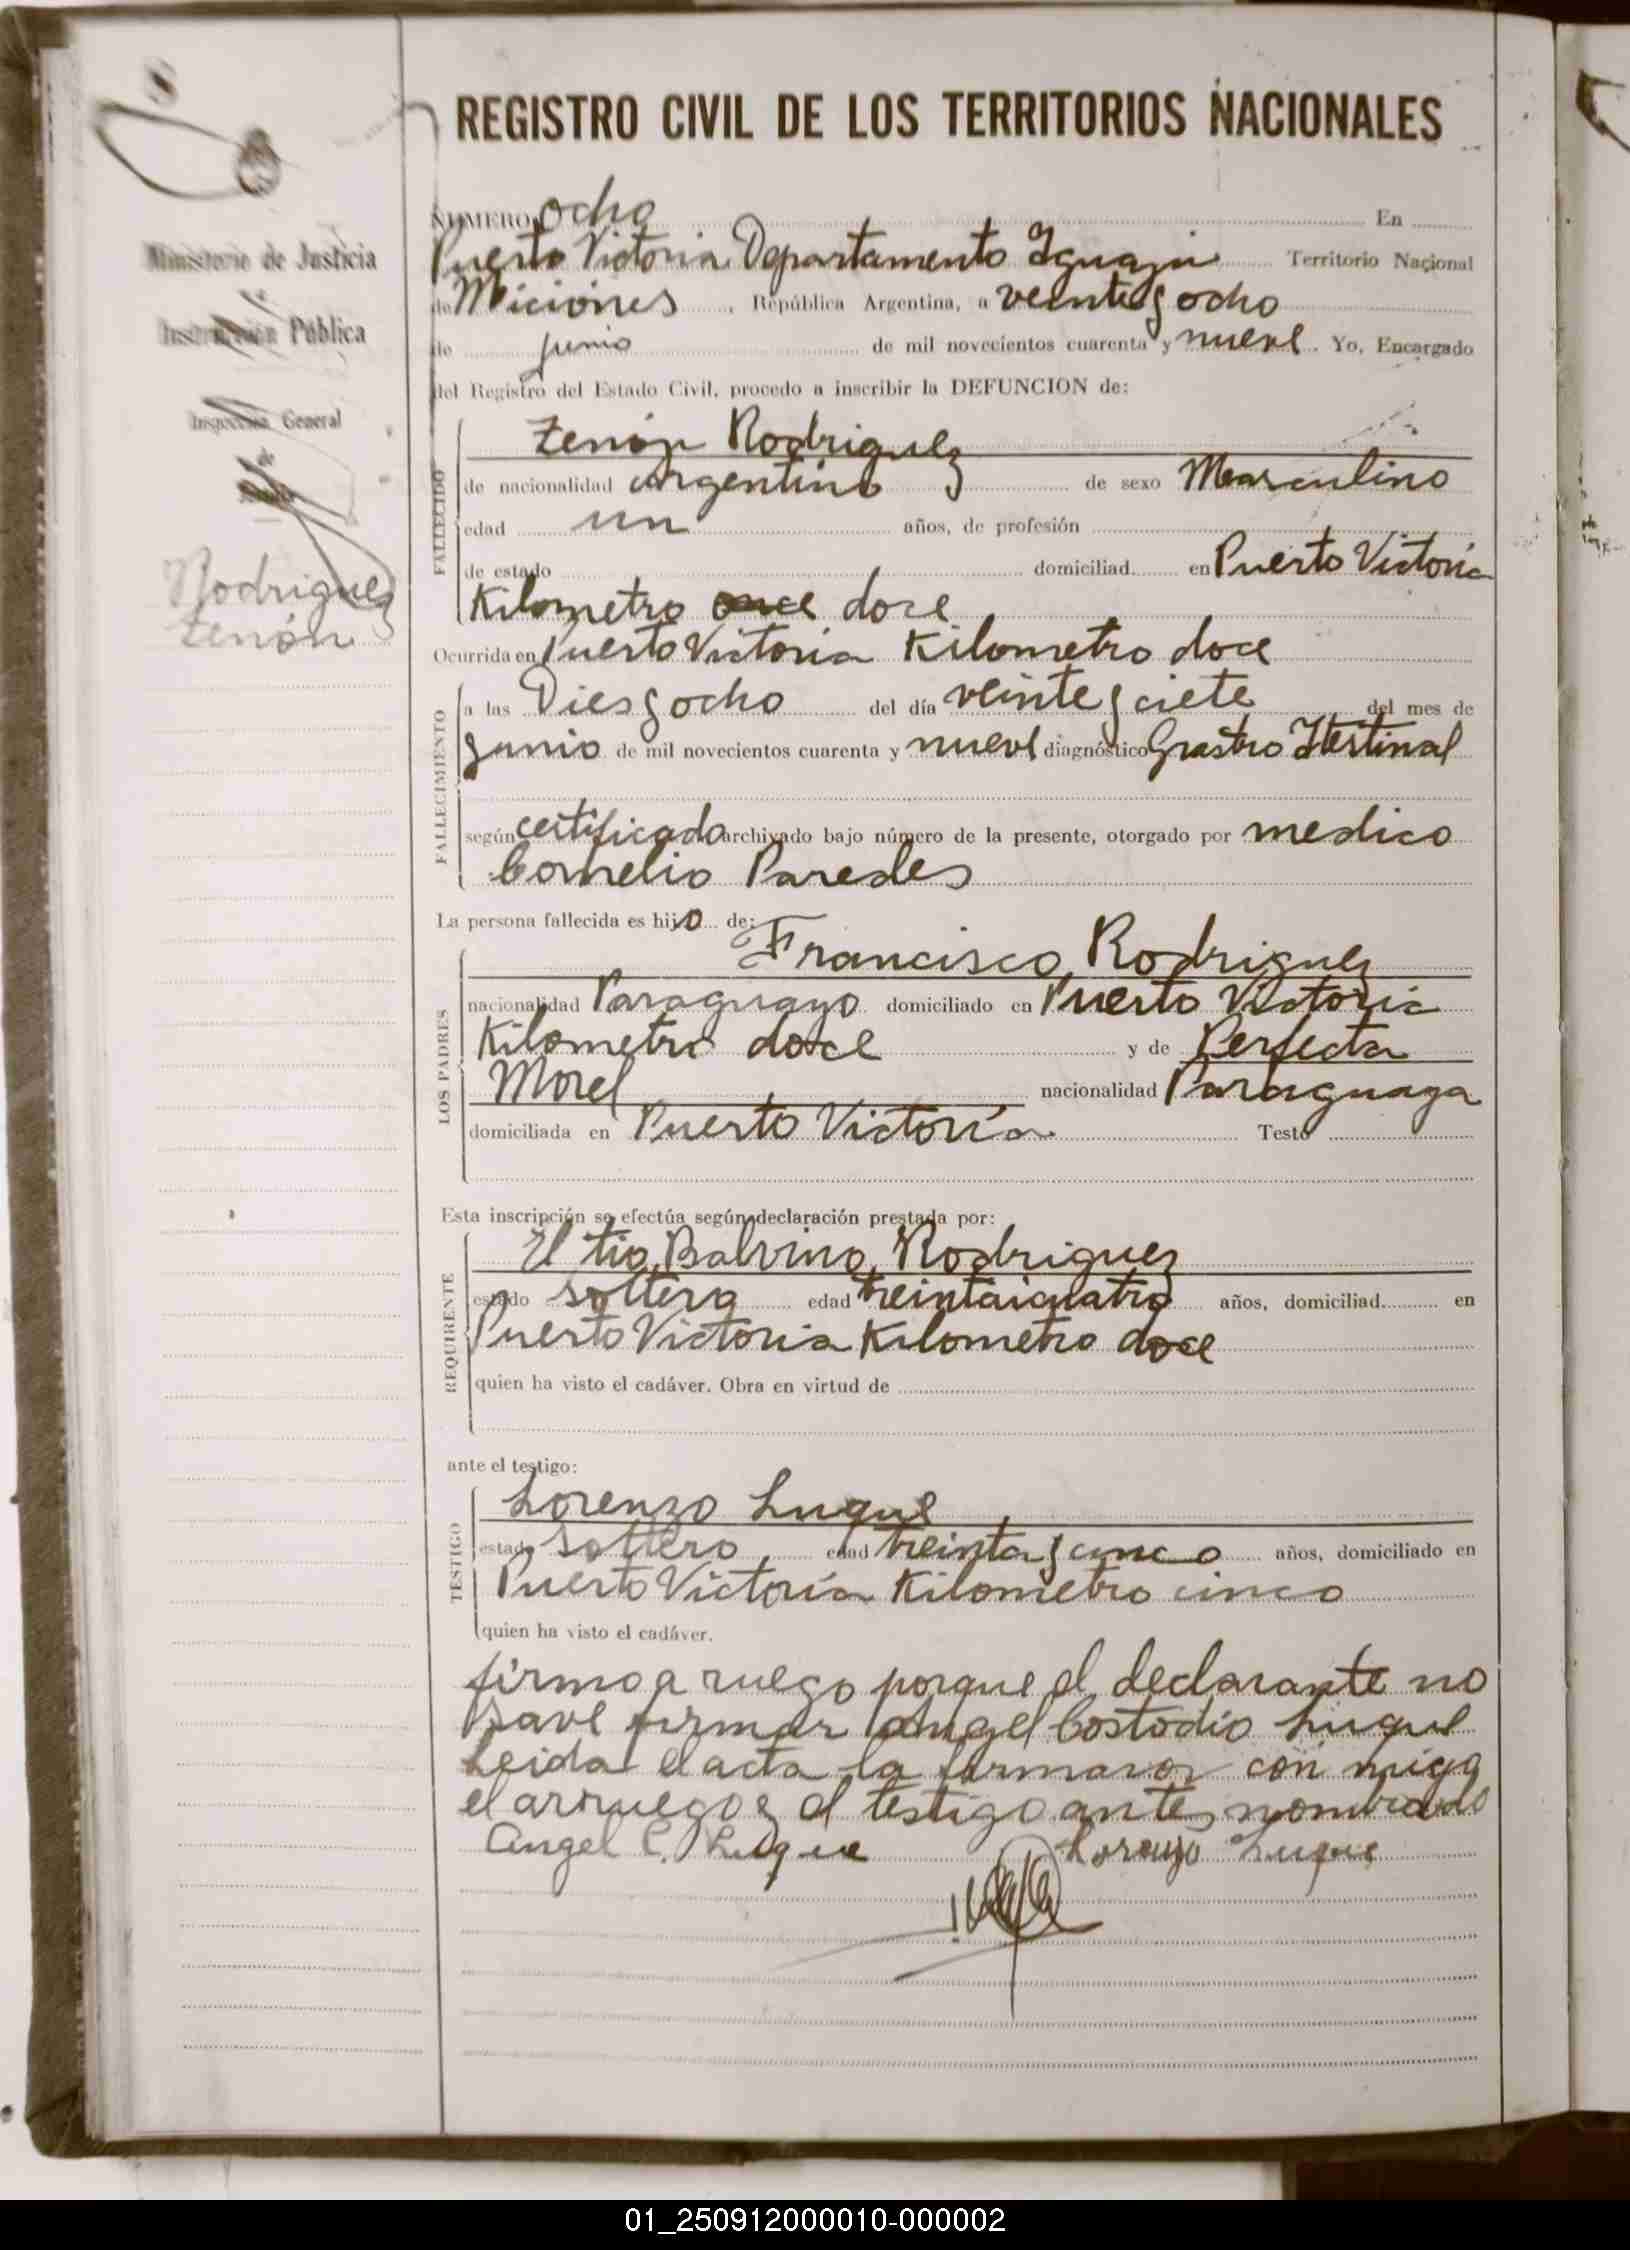 REGISTRO CIVIL DE LOS TERRITORIOS NACIONALES
Ministerio de Justicia
Instrucción Pública
Inspección General
de
Rodriguez
Zenón
NUMERO ocho En
Puerto Victoria Departamento Iguazu Territorio Nacional
de Miciones, República Argentina, a veinte y ocho
de junio de mil novecientos cuarenta y nueve. Yo, Encargado
del Registro del Estado Civil, procedo a inscribir la DEFUNCION de:
FALLECIDO
Zenón Rodriguez
de nacionalidad argentino de sexo Masculino
edad un años, de profesión
de estado domiciliad en Puerto Victoria
Kilometro once doce
Ocurrida en Puerto Victoria Kilometro doce
FALLECIMIENTO
a las Dies y ocho del día veinte y ciete del mes de
junio de mil novecientos cuarenta y nueve diagnóstico Grastro Itestinal
según certificado archivado bajo número de la presente, otorgado por medico
Cornelio Paredes
La persona fallecida es hijo de:
LOS PADRES
Francisco Rodriguez
nacionalidad Paraguayo domiciliado en Puerto Victoria
Kilometro doce y de Perfecta
Morel nacionalidad Paraguaya
domiciliada en Puerto Victoría Testó
Esta inscripción se efectúa según declaración prestada por:
REQUIRENTE
El tio Balvino Rodriguez
estado soltero edad treintaicuatro años, domiciliad en
Puerto Victoria Kilometro doce
quien ha visto el cadáver. Obra en virtud de
ante el testigo:
TESTIGO
Lorenzo Luque
estado soltero edad treinta y cinco años, domiciliado en
Puerto Victoría Kilometro cinco
quien ha visto el cadáver.
firmo a ruego porque el declarante no
save firmar Angel Costodio Luque
Leida el acta la firmaron con migo
el arruego y el testigo ante nombrado
Angel C. Luque Lorenzo Luque
01_250912000010-000002